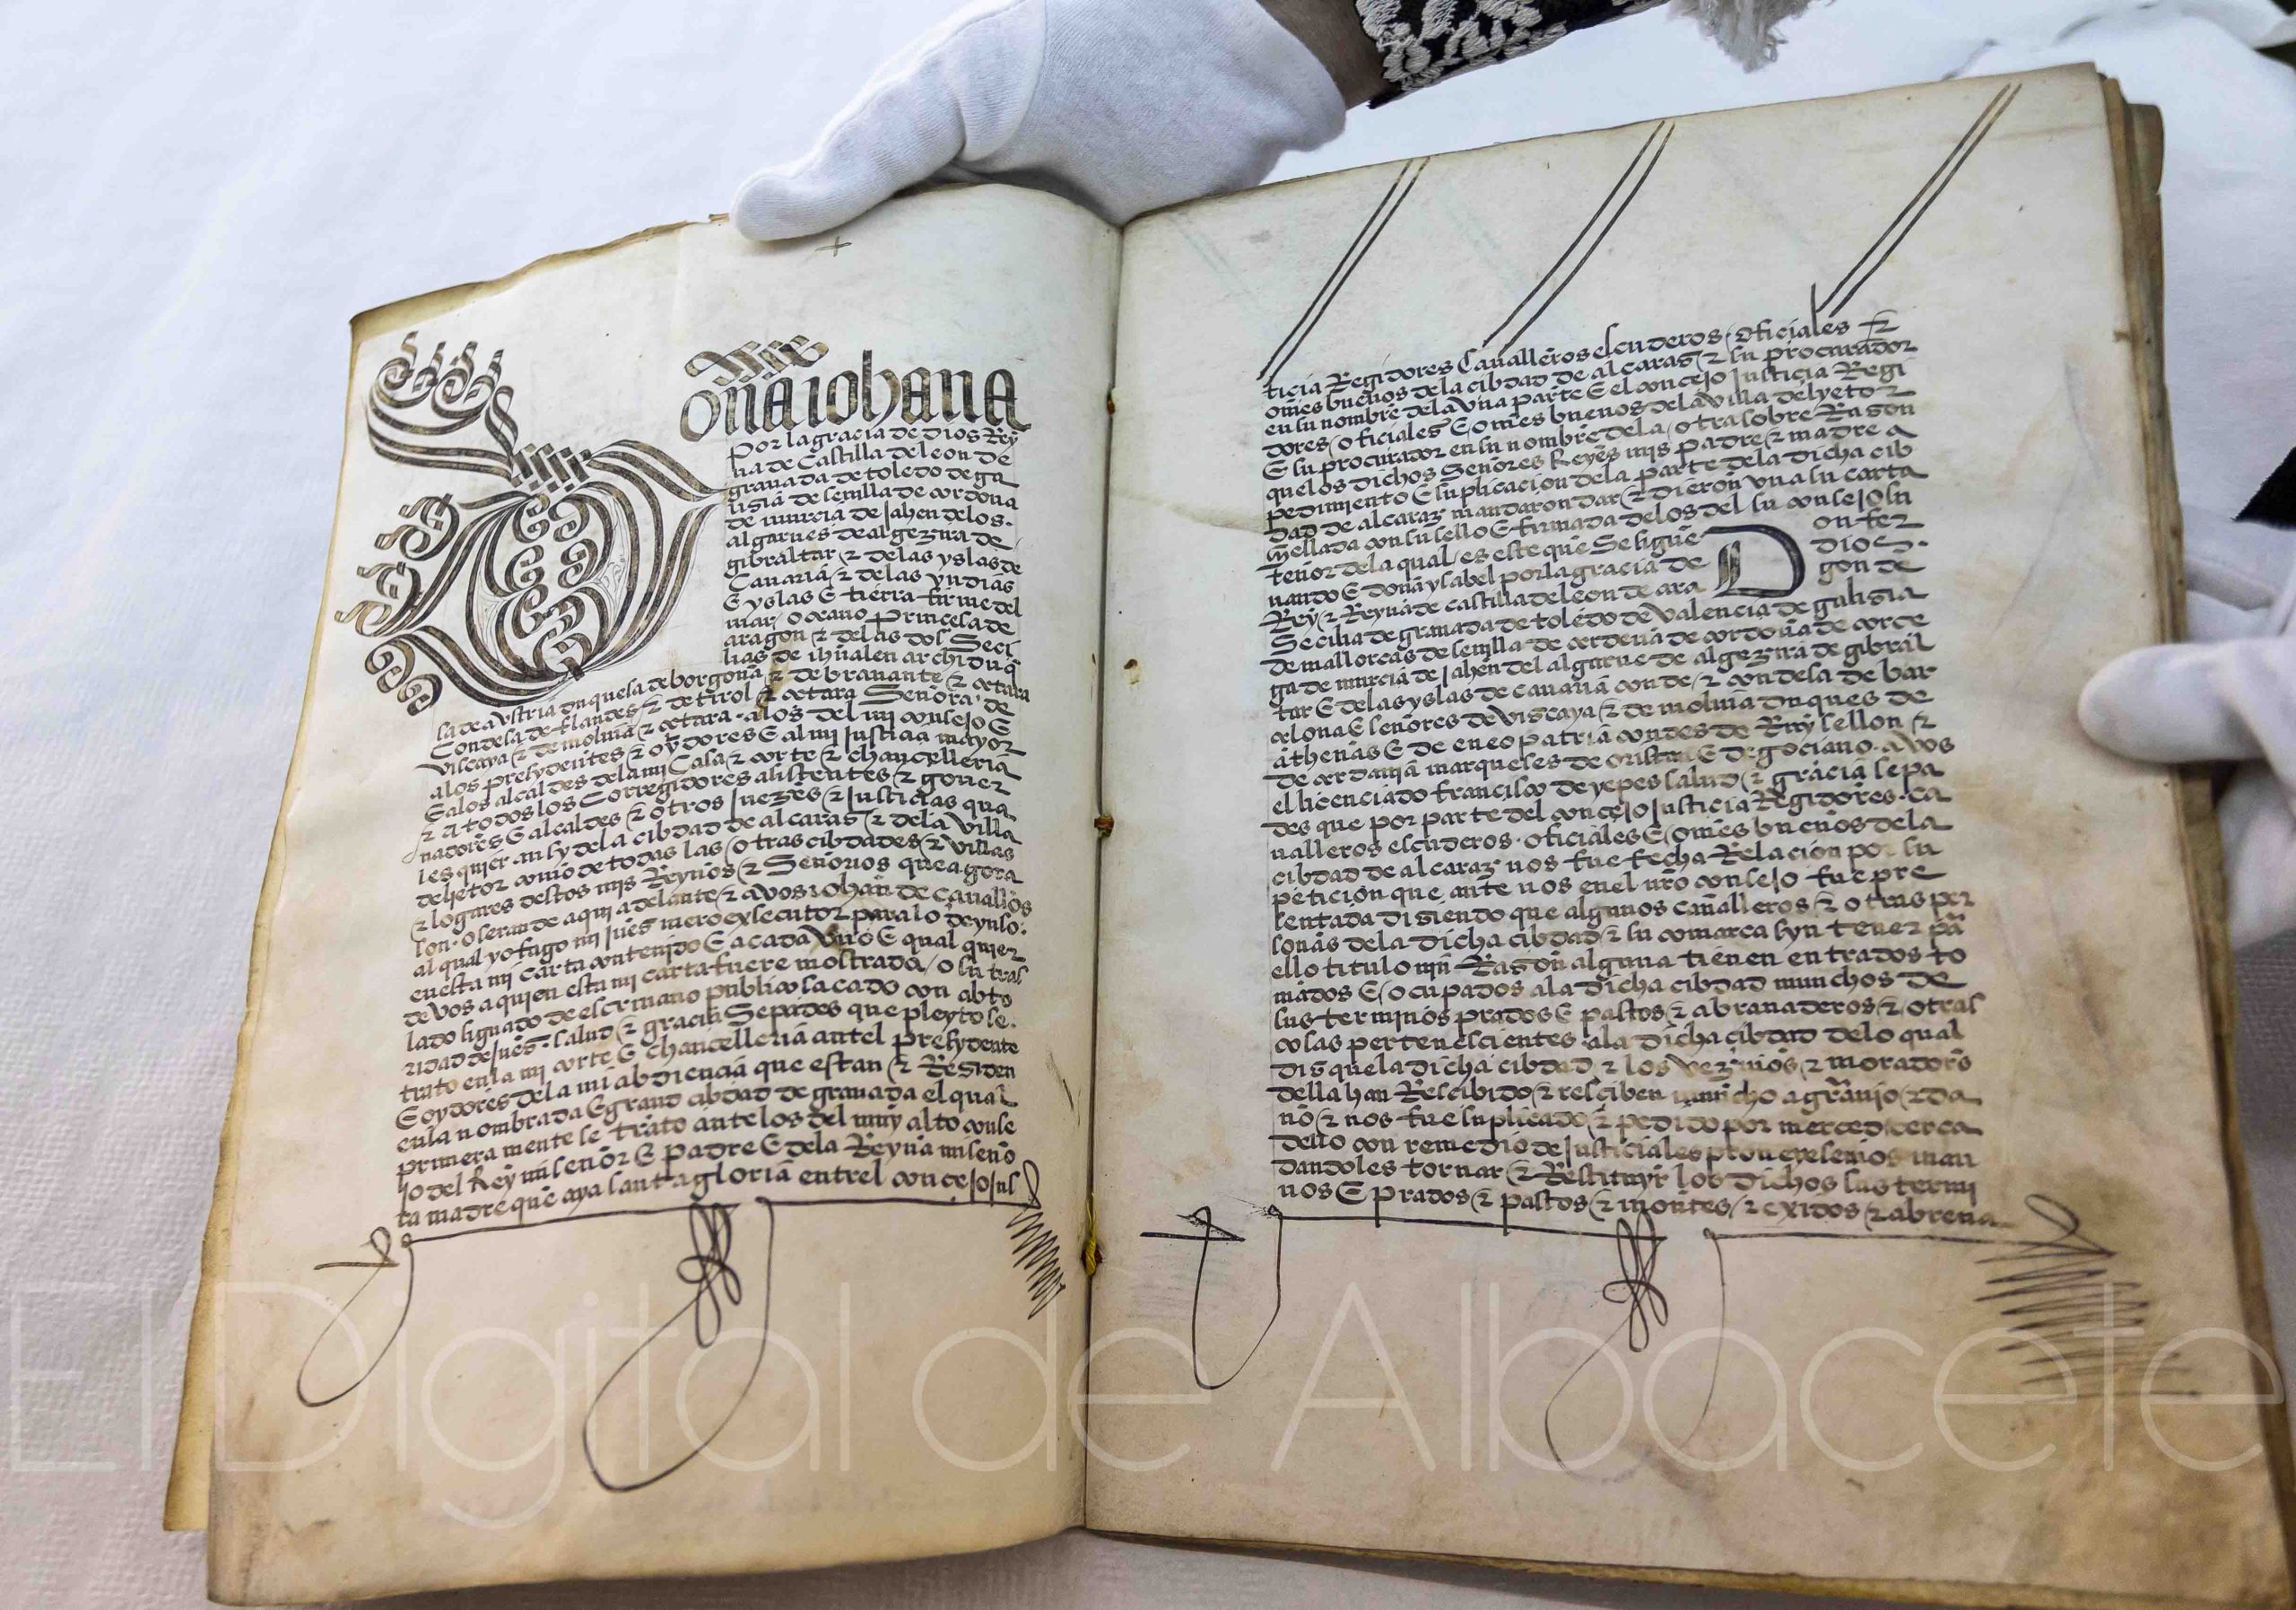 Doña iohana
por la gracia de dios Rey
na de Castilla de leon de
granada de toledo de ga
lizia de seuilla de cordoua
de murcia de Jahen de los
algarues de algezira de
gibraltar & de las yslas de
Canaria & de las yndias
E yslas E tierra firme del
mar oceano princesa de
aragon & de las dos Seci
lias de ihrusalen archiduq
sa de avstria duquesa de borgoña & de brauante & cetera
Condesa de flandes & de tirol & cetera Señora de
viscaya & de molina & cetera. a los del mi consejo E
a los presydentes & oydores E al mi Justicia mayor
E a los alcaldes de la mi Casa & corte & chancelleria
& a todos los Corregidores asistentes & gouer
nadores E alcaldes & otros Juezes & Justicias qua
les quier ansy de la cibdad de alcaras & de la villa
de lietor como de todas las otras cibdades & villas
& logares destos mis Reynos & Señorios que agora
son o seran de aqui adelante & a vos iohan de cauallos
al qual yo fago mi jues mero exsecutor para lo de yuso
en esta mi carta contenido E a cada vno E qual quier
de vos a quien esta mi carta fuere mostrada o su tras
lado signado de escriuano publico sacado con abto
ridad de jues. salud & gracia Sepades que pleyto se
trato en la mi corte E chancelleria antel presydente
E oydores de la mi abdiencia que estan & Residen
en la nombrada E grand cibdad de granada el qual
primera mente se trato ante los del muy alto conse
jo del Rey mi señor E padre E de la Reyna mi seño
ra madre que aya santa gloria entrel concejo Jus
ticia Regidores Caualleros escuderos oficiales &
omes buenos de la cibdad de alcaras & su procurador
en su nombre de la vna parte E el concejo Justicia Regi
dores oficiales E omes buenos de la villa de lyetor &
E su procurador en su nombre de la otra sobre Razon
que los dichos Señores Reyes mis padre & madre a
pedimiento E suplicacion de la parte de la dicha cib
dad de alcaraz mandaron dar & dieron vna su carta
sellada con su sello E firmada de los del su consejo su
tenor de la qual es este que se sigue Don fer
nando E doña ysabel por la gracia de dios
Rey & Reyna de castilla de leon de ara gon de
Secilia de granada de toledo de valencia de galisia
de mallorcas de seuilla de cerdeña de cordoua de corce
ga de murcia de Jahen del algarue de algezira de gibral
tar E de las yslas de canaria conde & condesa de bar
celona E señores de viscaya & de molina duques de
athenas E de neopatria condes de Ruysellon &
de cerdania marqueses de oristan E de gociano. a vos
el licenciado francisco de yepes salud & gracia sepa
des que por parte del concejo Justicia Regidores. ca
ualleros escuderos. oficiales E omes buenos de la
cibdad de alcaraz nos fue fecha Relacion por su
peticion que ante nos en el nro consejo fue pre
sentada disiendo que algunos caualleros & otras per
sonas de la dicha cibdad & su comarca syn tener pa
ello titulo nin Razon alguna tienen entrados to
mados E ocupados a la dicha cibdad munchos de
sus terminos prados E pastos & abrauaderos & otras
cosas pertenescientes a la dicha cibdad de lo qual
dis que la dicha cibdad & los vezinos & moradores
della han Rescibido & resciben muncho agrauio & da
ño & nos fue suplicado & pedido por merced cerca
dello con remedio de Justicia les proueyesemos man
dandoles tornar & Restituyr los dichos sus termi
nos E prados & pastos & montes & exidos & abreua
El Digital de Albacete